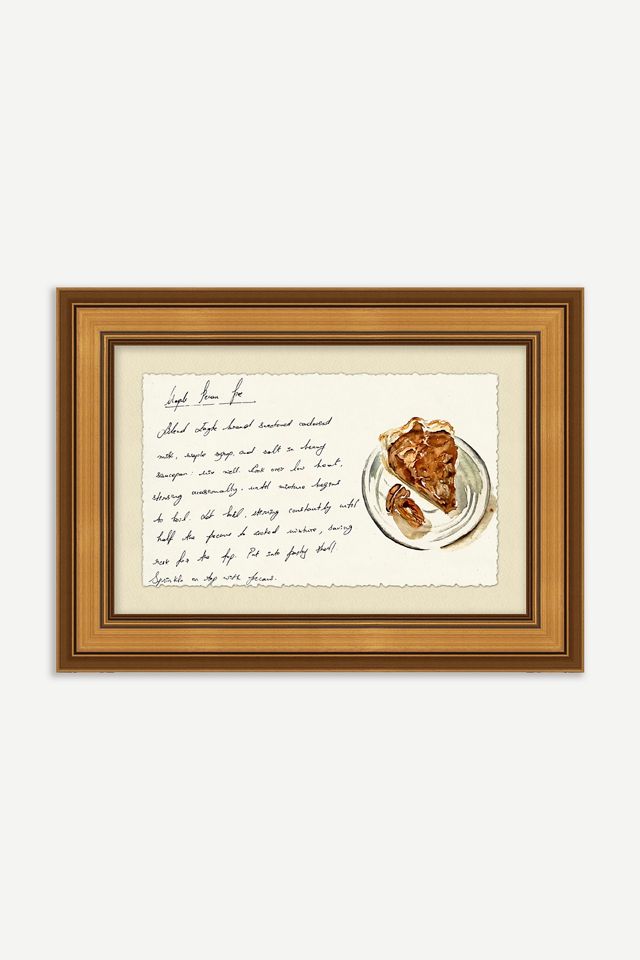 Maple Pecan Pie
Blend Eagle brand sweetened condensed
milk, maple syrup, and salt in heavy
saucepan: mix well. Cook over low heat,
stirring occasionally, until mixture begins
to boil. Let boil, stirring constantly until
half the pecans to cooked mixture, saving
rest for the top. Put into pastry shell.
Sprinkle on top with pecans.